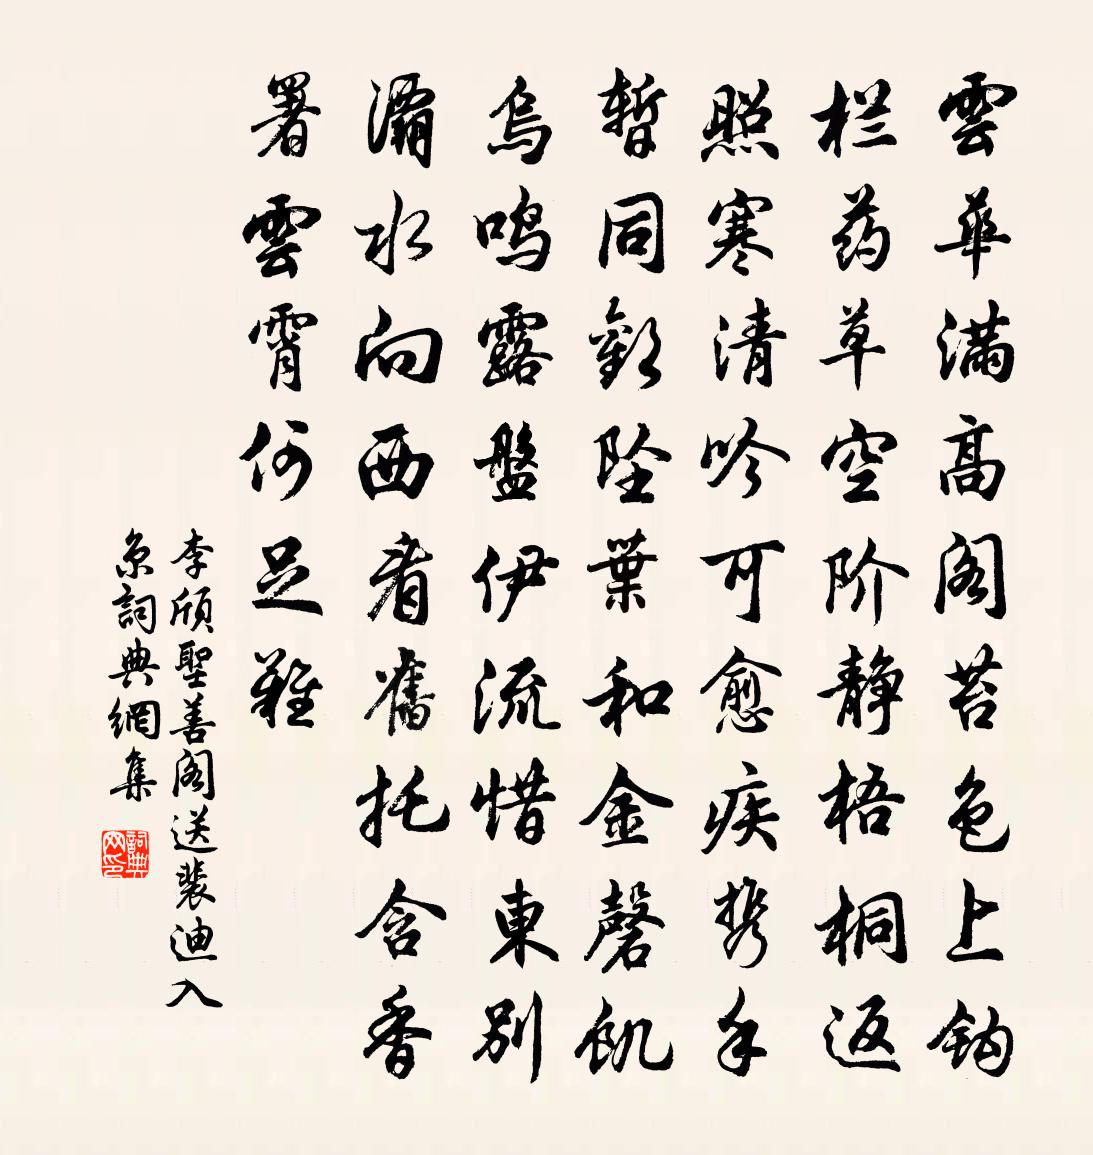 雲華滿高阁苔色上鈎
栏药草空阶静梧桐返
照寒清吟可愈疾携手
暫同歡坠葉和金磬飢
烏鳴露盤伊流惜東別
灞水向西看舊托含香
署雲霄何足難
李頎聖善阁送裴迪入
京詞典網集
詞典网印